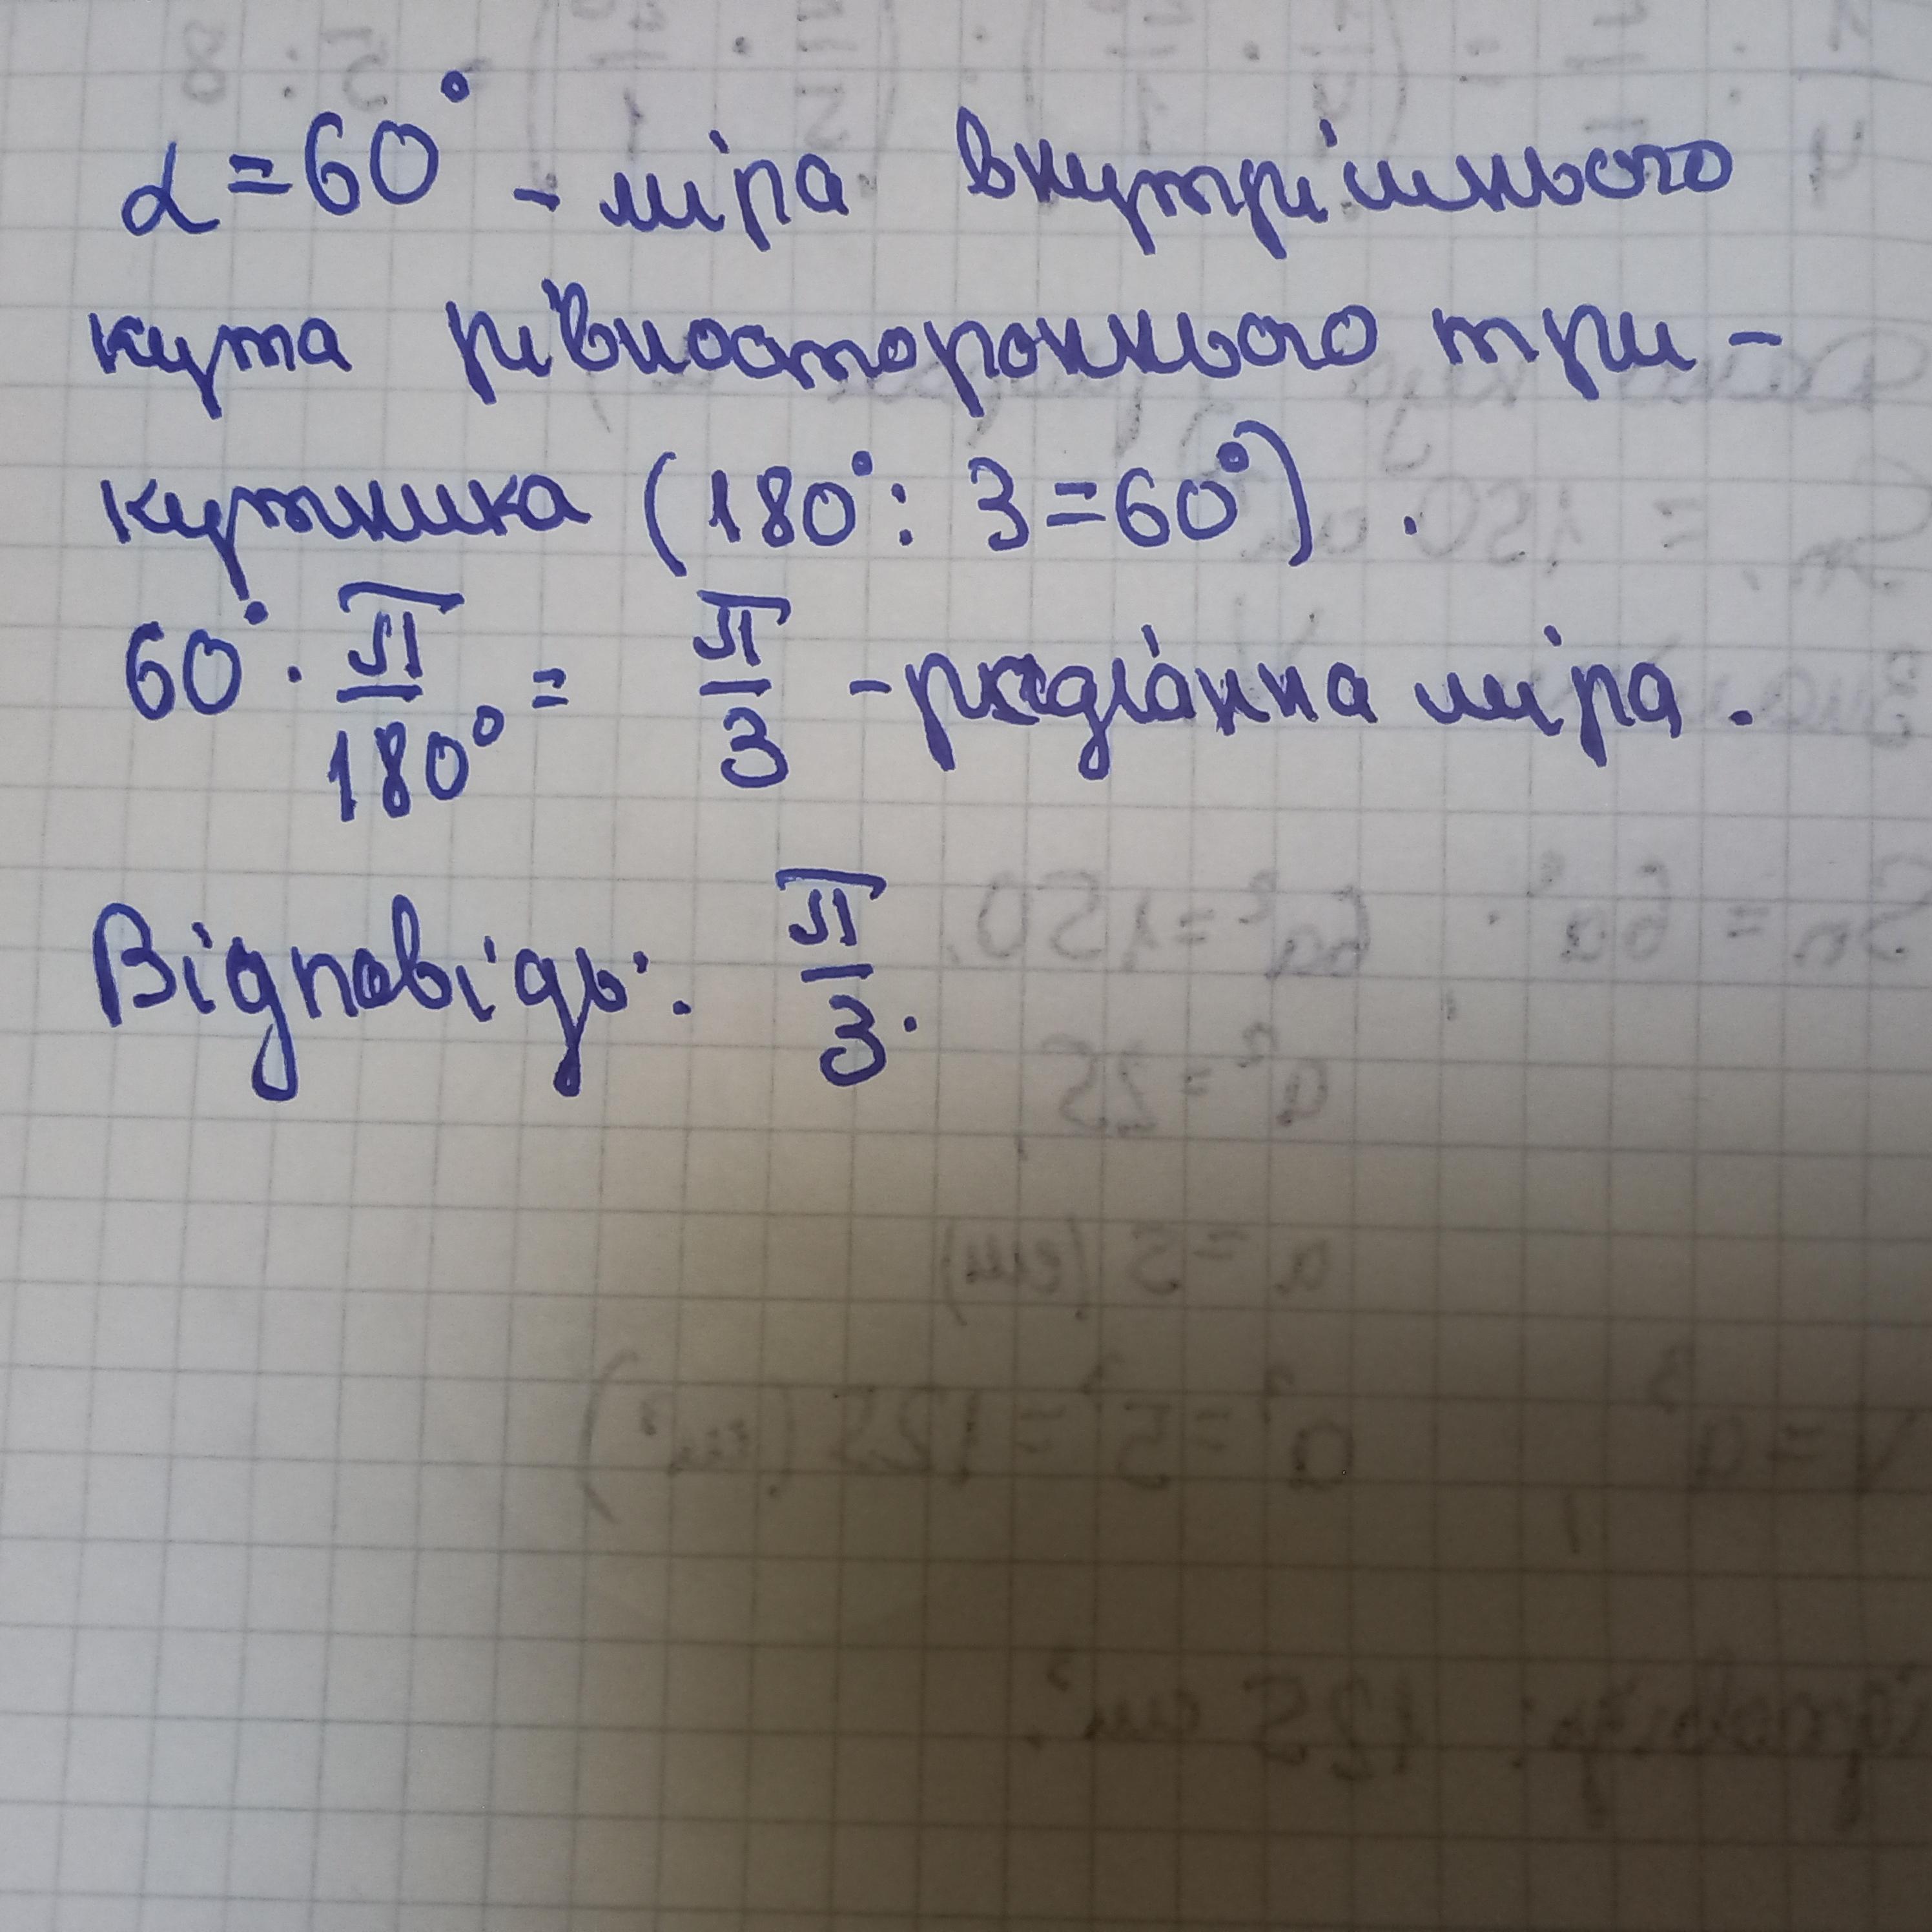 α = 60° - міра внутрішнього
кута рівностороннього три-
кутника (180° : 3 = 60°).
60° · π/180° = π/3 - радіанна міра.
Відповідь: π/3.